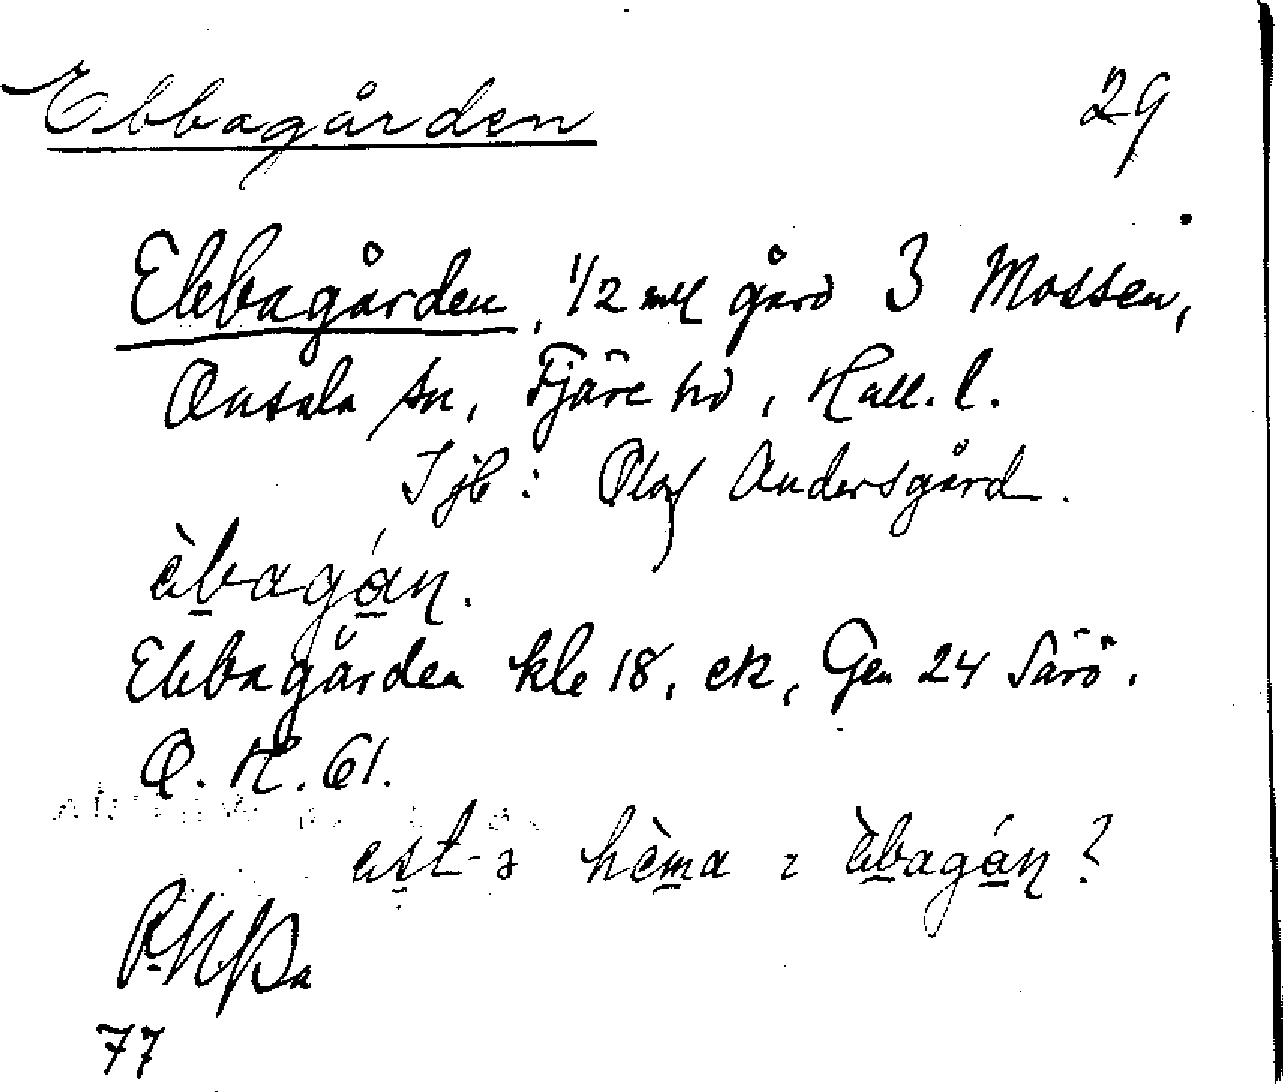 Ebbagården 29
Ebbagården, 1/2 mtl gård 3 Mossen,
Onsala sn, Fjäre hd, Hall. l.
Jjb: Olof Andersgård.
èbagán.
Ebbagården kle 18, ek, Gen 24 Särö.
O. H. 61.
hèma ɩ èbagán?
77